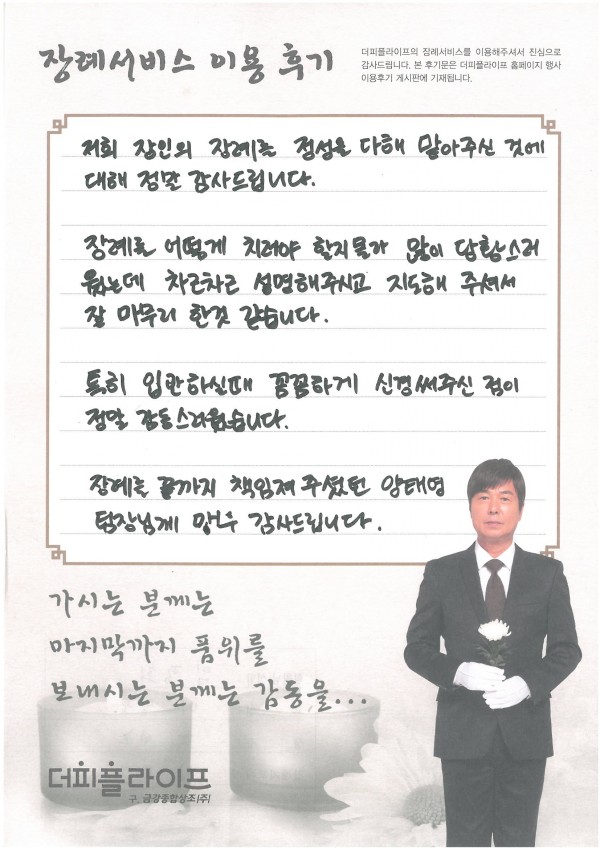 장례서비스 이용 후기
더피플라이프의 장례서비스를 이용해주셔서 진심으로
감사드립니다. 본 후기문은 더피플라이프 홈페이지 행사
이용후기 게시판에 기재됩니다.
저희 장인의 장례를 정성을 다해 맡아주신 것에
대해 정말 감사드립니다.
장례를 어떻게 치러야 할지몰라 많이 당황스러
웠는데 차근차근 설명해주시고 지도해 주셔서
잘 마무리 한것 같습니다.
특히 입관하실때 꼼꼼하게 신경써주신 점이
정말 감동스러웠습니다.
장례를 끝까지 책임져 주셨던 양태영
팀장님께 매우 감사드립니다.
가시는 분께는
마지막까지 품위를
보내시는 분께는 감동을...
더피플라이프
구. 금강종합상조(주)